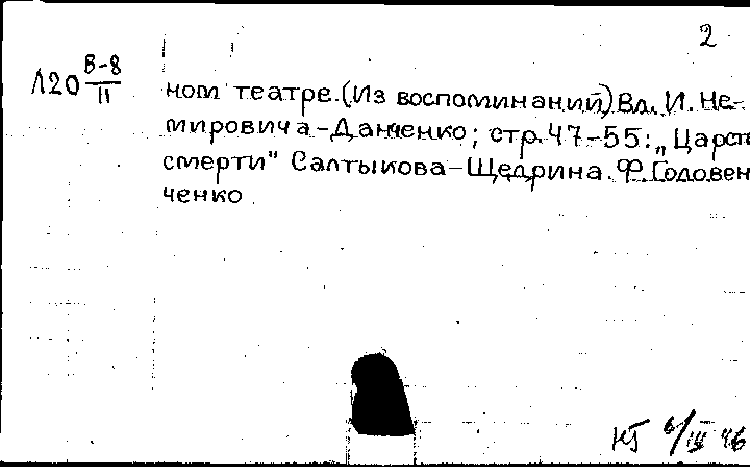 2
Л20 В-8/II
ном театре. (Из воспоминаний) Вл. И. Не-
мировича-Данченко; стр. 47-55: „Царст
смерти" Салтыкова-Щедрина. Ф. Головен
ченко
НТ 6/III 46